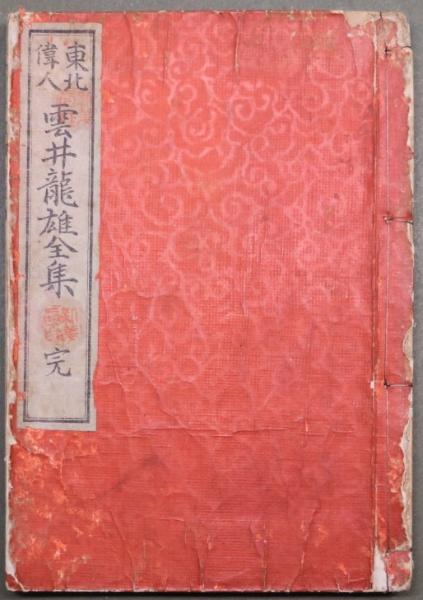 東北
偉人
雲井龍雄全集
完